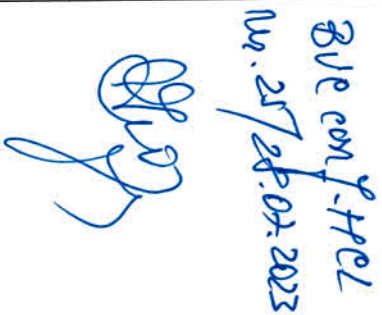 BVC conf. HCL
Nr. 25/28.07.2023